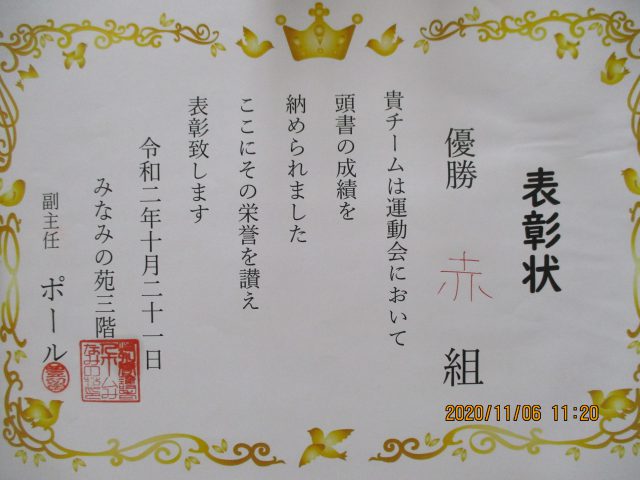 表彰状
優勝 赤 組
貴チームは運動会において
頭書の成績を
納められました
ここにその栄誉を讃え
表彰致します
令和二年十月二十一日
みなみの苑三階
副主任 ポール
2020/11/06 11:20